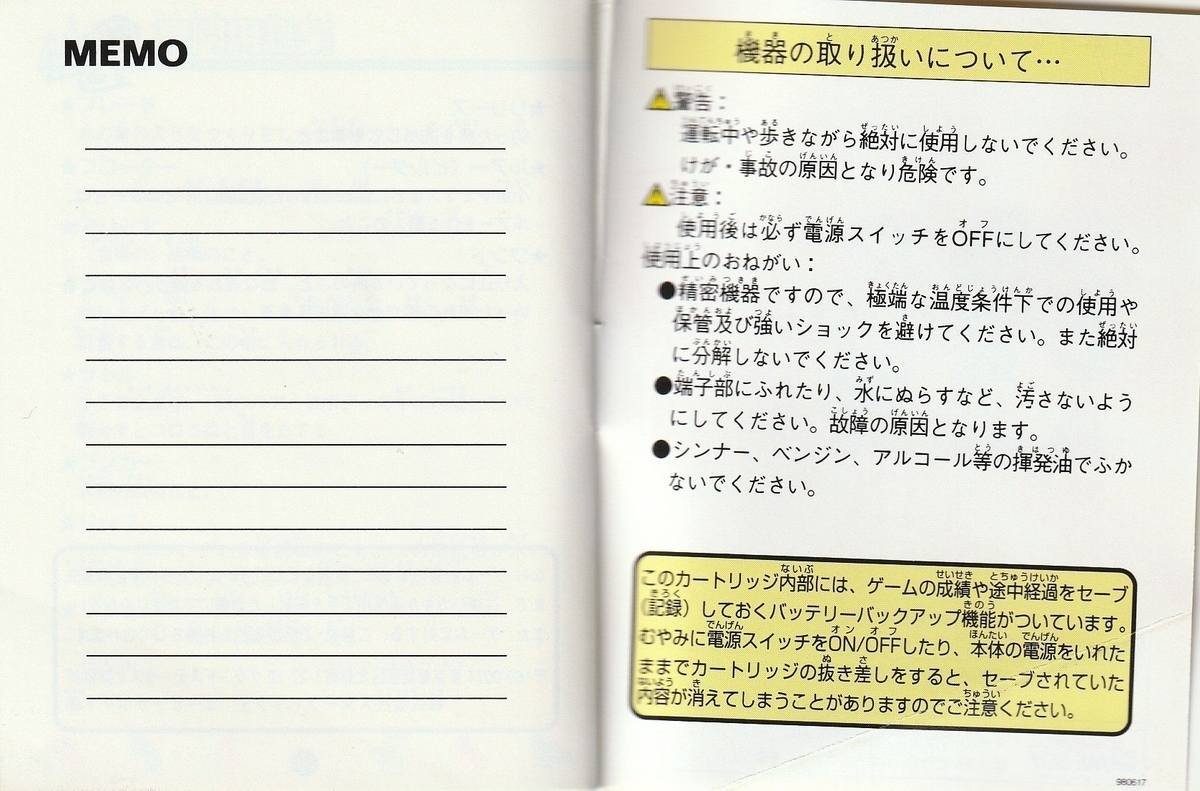 MEMO
機器の取り扱いについて…
警告：
運転中や歩きながら絶対に使用しないでください。
けが・事故の原因となり危険です。
注意：
使用後は必ず電源スイッチをOFFにしてください。
使用上のおねがい：
●精密機器ですので、極端な温度条件下での使用や
保管及び強いショックを避けてください。また絶対
に分解しないでください。
●端子部にふれたり、水にぬらすなど、汚さないよう
にしてください。故障の原因となります。
●シンナー、ベンジン、アルコール等の揮発油でふか
ないでください。
このカートリッジ内部には、ゲームの成績や途中経過をセーブ
（記録）しておくバッテリーバックアップ機能がついています。
むやみに電源スイッチをON/OFFしたり、本体の電源をいれた
ままでカートリッジの抜き差しをすると、セーブされていた
内容が消えてしまうことがありますのでご注意ください。
980617